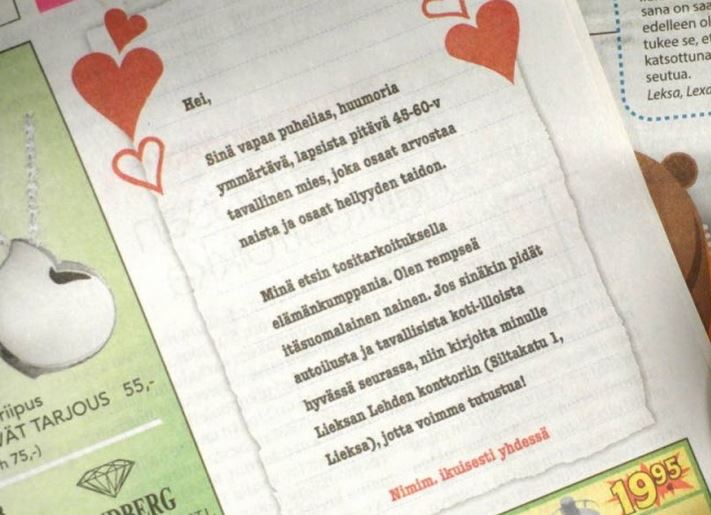 Hei,
Sinä vapaa puhelias, huumoria
ymmärtävä, lapsista pitävä 45-60-v
tavallinen mies, joka osaat arvostaa
naista ja osaat hellyyden taidon.
Minä etsin tositarkoituksella
elämänkumppania. Olen rempseä
itäsuomalainen nainen. Jos sinäkin pidät
autoilusta ja tavallisista koti-illoista
hyvässä seurassa, niin kirjoita minulle
Lieksan Lehden konttoriin (Siltakatu 1,
Lieksa), jotta voimme tutustua!
Nimim. ikuisesti yhdessä
riipus
VÄT TARJOUS 55,-
75,-)
sana on saa
edelleen ol
tukee se, et
katsottuna
seutua.
Leksa, Lexa
1995